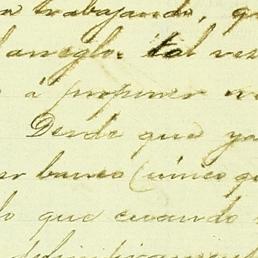 trabajando, q
arreglo. tal vez
á proponer
Desde que ya
banco (único q
lo que cuando